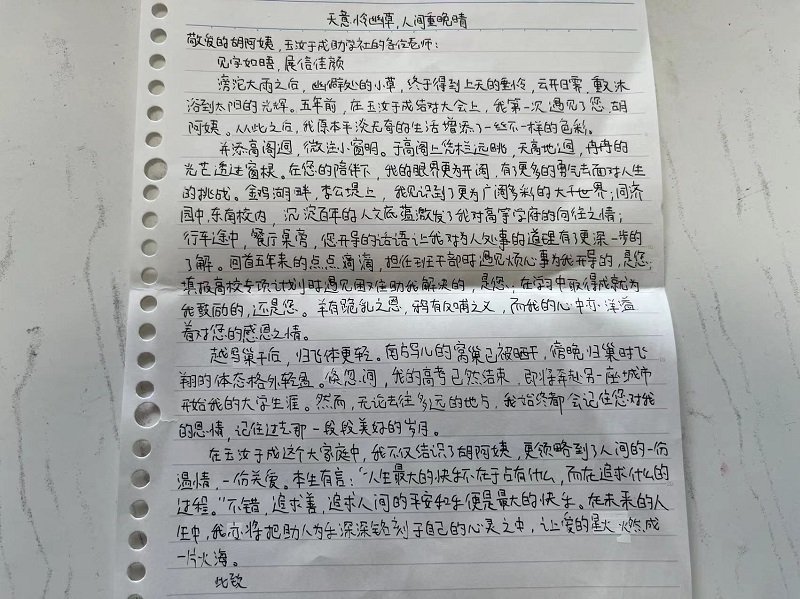 天意怜幽草,人间重晚晴
敬爱的胡阿姨,玉汝于成助学社的各位老师:
见字如晤,展信佳颜
滂沱大雨之后,幽僻处的小草,终于得到上天的垂怜,云开日霁,重沐
浴到太阳的光辉。五年前,在玉汝于成结对大会上,我第一次遇见了您,胡
阿姨。从此之后,我原本平淡无奇的生活增添了一丝不一样的色彩。
并添高阁迥,微注小窗明。于高阁上凭栏远眺,天高地迥,冉冉的
光芒透过窗棂。在您的陪伴下,我的眼界更为开阔,有了更多的勇气去面对人生
的挑战。金鸡湖畔,李公堤上,我见识到了更为广阔多彩的大千世界;同济
园中,东南校内,沉淀百年的人文底蕴激发了我对高等学府的向往之情;
行车途中,餐厅桌旁,您开导的话语让我对为人处事的道理有了更深一步的
了解。回首五年来的点点滴滴,担任班干部时遇见烦心事为我开导的,是您;
填报高校专项计划时遇见困难住助我解决的,是您;在学习中取得成就为
我鼓励的,还是您。羊有跪乳之恩,鸦有反哺之义,而我的心中亦洋溢
着对您的感恩之情。
越鸟巢干后,归飞体更轻。南方鸟儿的窝巢已被晒干,傍晚归巢时飞
翔的体态格外轻盈。倏忽间,我的高考已然结束,即将奔赴另一座城市
开始我的大学生涯。然而,无论去往多远的地方,我始终都会记住您对我
的恩情,记住过去那一段段美好的岁月。
在玉汝于成这个大家庭中,我不仅结识了胡阿姨,更领略到了人间的一份
温情,一份关爱。本生有言:“人生最大的快乐不在于占有什么,而在追求什么的
过程。”不错,追求善,追求人间的平安和乐便是最大的快乐。在未来的人
生中,我亦将把助人为乐深深铭刻于自己的心灵之中,让爱的星火燃成
一片火海。
此致